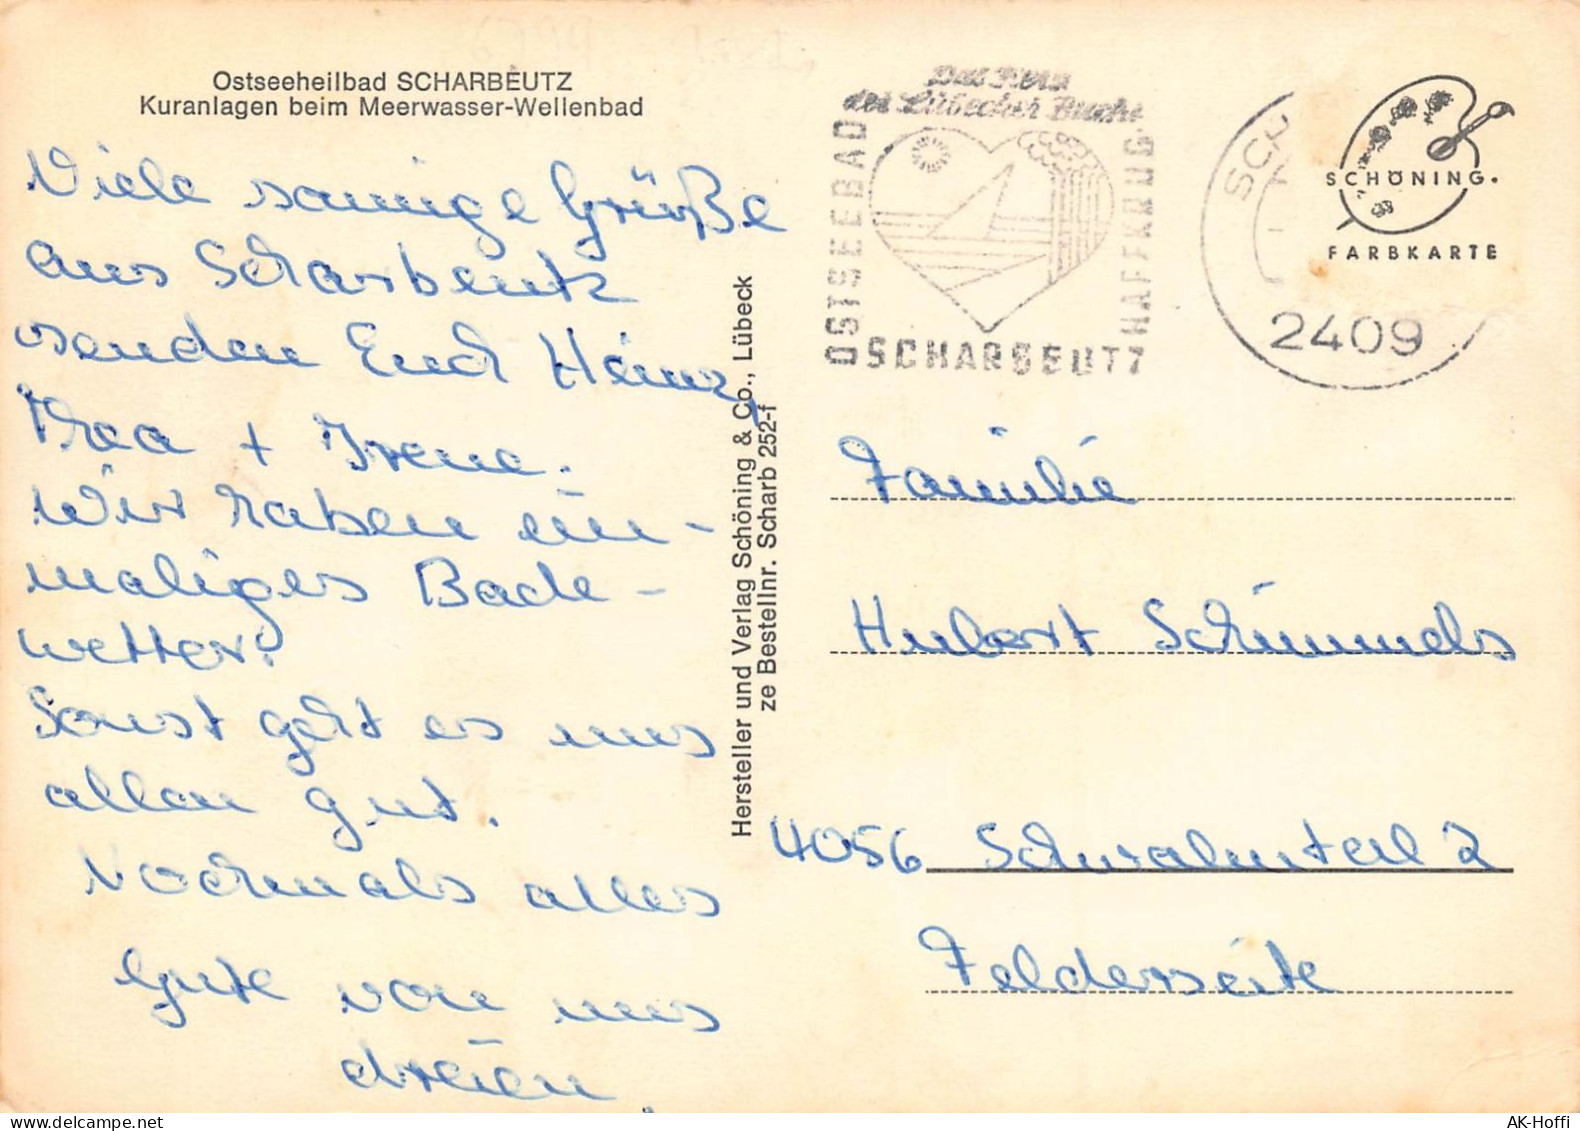 Ostseeheilbad SCHARBEUTZ
Kuranlagen beim Meerwasser-Wellenbad
Viele sonnige Grüße
aus Scharbeutz
senden Euch Heinz,
Thea + Irene.
Wir haben ein-
maliges Bade-
wetter.
Sonst geht es uns
allen gut.
Nochmals alles
Gute von uns
dreien.
Hersteller und Verlag Schöning & Co., Lübeck
ze Bestellnr. Scharb 252-f
Das Herz
der Lübecher Bucht
OSTSEEBAD
SCHARBEUTZ
HAFFKRUG
2409
SCHÖNING.
FARBKARTE
Familie
Hubert Schimmels
4056 Schwalmtal 2
Felderseite
AK-Hoffi